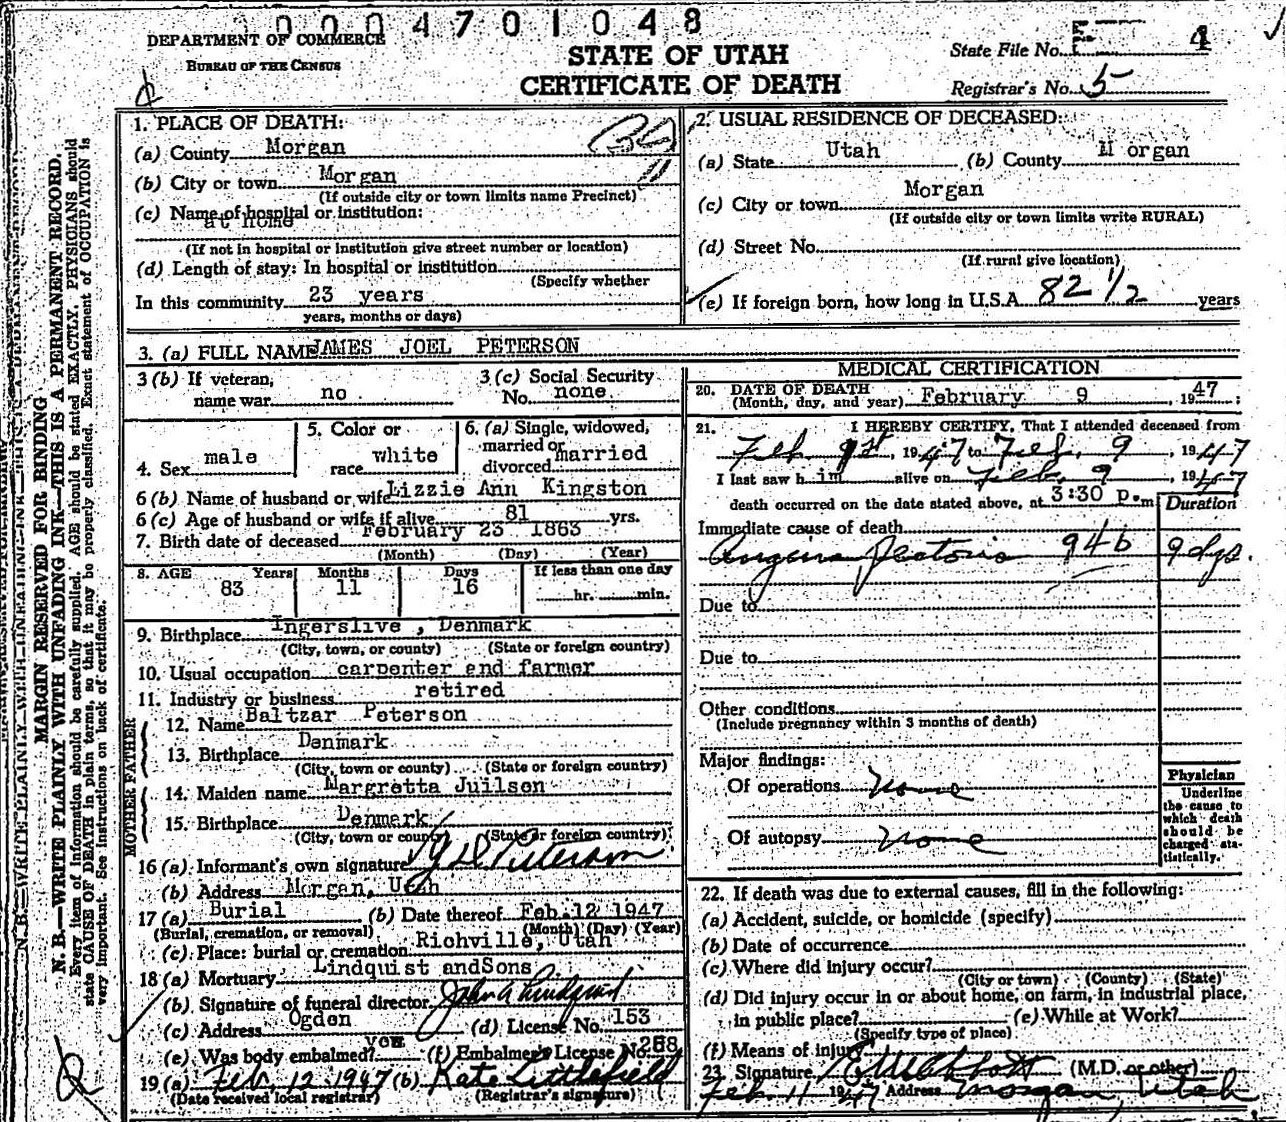 0004701048
DEPARTMENT OF COMMERCE
BUREAU OF THE CENSUS
STATE OF UTAH
CERTIFICATE OF DEATH
State File No. 4
Registrar's No. 5
1. PLACE OF DEATH:
(a) County Morgan
(b) City or town Morgan
(If outside city or town limits name Precinct)
(c) Name of hospital or institution:
at home
(If not in hospital or institution give street number or location)
(d) Length of stay: In hospital or institution
(Specify whether
In this community 23 years
years, months or days)
2. USUAL RESIDENCE OF DECEASED:
(a) State Utah (b) County M organ
(c) City or town Morgan
(If outside city or town limits write RURAL)
(d) Street No.
(If rural give location)
(e) If foreign born, how long in U.S.A. 82 1/2 years
3. (a) FULL NAME JAMES JOEL PETERSON
3 (b) If veteran, name war no
3 (c) Social Security No. none
4. Sex male
5. Color or race white
6. (a) Single, widowed, married or divorced married
6 (b) Name of husband or wife Lizzie Ann Kingston
6 (c) Age of husband or wife if alive 81 yrs.
7. Birth date of deceased February 23 1863
(Month) (Day) (Year)
8. AGE Years Months Days If less than one day
83 11 16 hr. min.
9. Birthplace Ingerslive, Denmark
(City, town, or county) (State or foreign country)
10. Usual occupation carpenter and farmer
11. Industry or business retired
FATHER
12. Name Baltzar Peterson
13. Birthplace Denmark
(City, town or county) (State or foreign country)
MOTHER
14. Maiden name Margretta Juilson
15. Birthplace Denmark
(City, town or county) (State or foreign country)
16 (a) Informant's own signature
(b) Address Morgan, Utah
17 (a) Burial (b) Date thereof Feb. 12 1947
(Burial, cremation, or removal) (Month) (Day) (Year)
(c) Place: burial or cremation Richville, Utah
18 (a) Mortuary Lindquist andSons
(b) Signature of funeral director John A Lindquist
(c) Address Ogden (d) License No. 153
(e) Was body embalmed? yes (f) Embalmer's License No. 268
19 (a) Feb. 12 1947 (b) Kate Littlefield
(Date received local registrar) (Registrar's signature)
MEDICAL CERTIFICATION
20. DATE OF DEATH
(Month, day, and year) February 9, 1947;
21. I HEREBY CERTIFY, That I attended deceased from
Feb. 1st, 1947 to Feb. 9, 1947
I last saw h im alive on Feb. 9, 1947
death occurred on the date stated above, at 3:30 p.m
Duration
Immediate cause of death
Angina Pectoris 94b 9 dys.
Due to
Due to
Other conditions
(Include pregnancy within 3 months of death)
Major findings:
Of operations none
Of autopsy none
Physician
Underline the cause to which death should be charged statistically.
22. If death was due to external causes, fill in the following:
(a) Accident, suicide, or homicide (specify)
(b) Date of occurrence
(c) Where did injury occur?
(City or town) (County) (State)
(d) Did injury occur in or about home, on farm, in industrial place,
in public place? (e) While at Work?
(Specify type of place)
(f) Means of injury
23. Signature (M.D. or other)
Feb 11 1947 Address Morgan, Utah
MARGIN RESERVED FOR BINDING
N. B.—WRITE PLAINLY WITH UNFADING INK—THIS IS A PERMANENT RECORD.
Every item of information should be carefully supplied. AGE should be stated EXACTLY. PHYSICIANS should
state CAUSE OF DEATH in plain terms, so that it may be properly classified. Exact statement of OCCUPATION is
very important. See instructions on back of certificate.